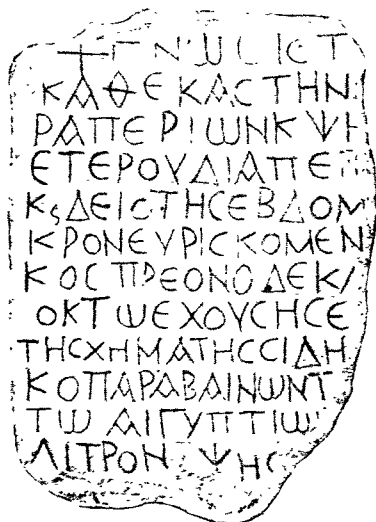 ΚΑΘΕΚΑCΤΗΝ
ΡΑΠΕΡΙΩΝΚΨΗ
ΕΤΕΡΟΥΔΙΑΠΕ
ΚϛΔΕΙCΤΗCΕΒΔΟΜ
ΚΡΟΝΕΥΡΙCΚΟΜΕΝ
ΚΟCΠΡΕΟΝΟΔΕΚ/
ΟΚΤΩΕΧΟΥCΗCΕ
ΤΗCΧΗΜΑΤΗCCΙΔΗ
ΚΟΠΑΡΑΒΑΙΝΩΝΤ
ΤΩ ΑΙΓΥΠΤΙΩ
ΛΙΤΡΟΝ ΨΗC